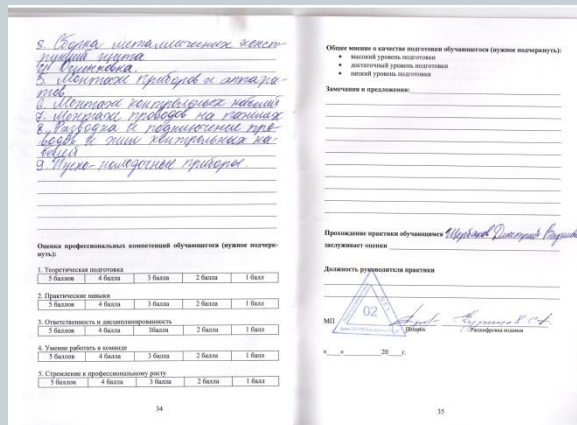 3. Сборка металлических конст-
рукций щита
4. Ошиновка.
5. Монтаж приборов и аппара-
тов.
6. Монтаж контрольных кабелей
7. Монтаж проводов на панелях
8. Разводка и подключение про-
водов и жил контрольных ка-
белей
9. Пуско-наладочные приборов.
Оценка профессиональных компетенций обучающегося (нужное подчерк-
нуть):
1. Теоретическая подготовка
5 баллов 4 балла 3 балла 2 балла 1 балл
2. Практические навыки
5 баллов 4 балла 3 балла 2 балла 1 балл
3. Ответственность и дисциплинированность
5 баллов 4 балла 3балла 2 балла 1 балл
4. Умение работать в команде
5 баллов 4 балла 3 балла 2 балла 1 балл
5. Стремление к профессиональному росту
5 баллов 4 балла 3 балла 2 балла 1 балл
34
Общее мнение о качестве подготовки обучающегося (нужное подчеркнуть):
• высокий уровень подготовки
• достаточный уровень подготовки
• низкий уровень подготовки
Замечания и предложения:
Прохождение практики обучающимся Щербаков Дмитрий
заслуживает оценки
Должность руководителя практики
02
МП
Подпись Расшифровка подписи
«___»________20___г.
35